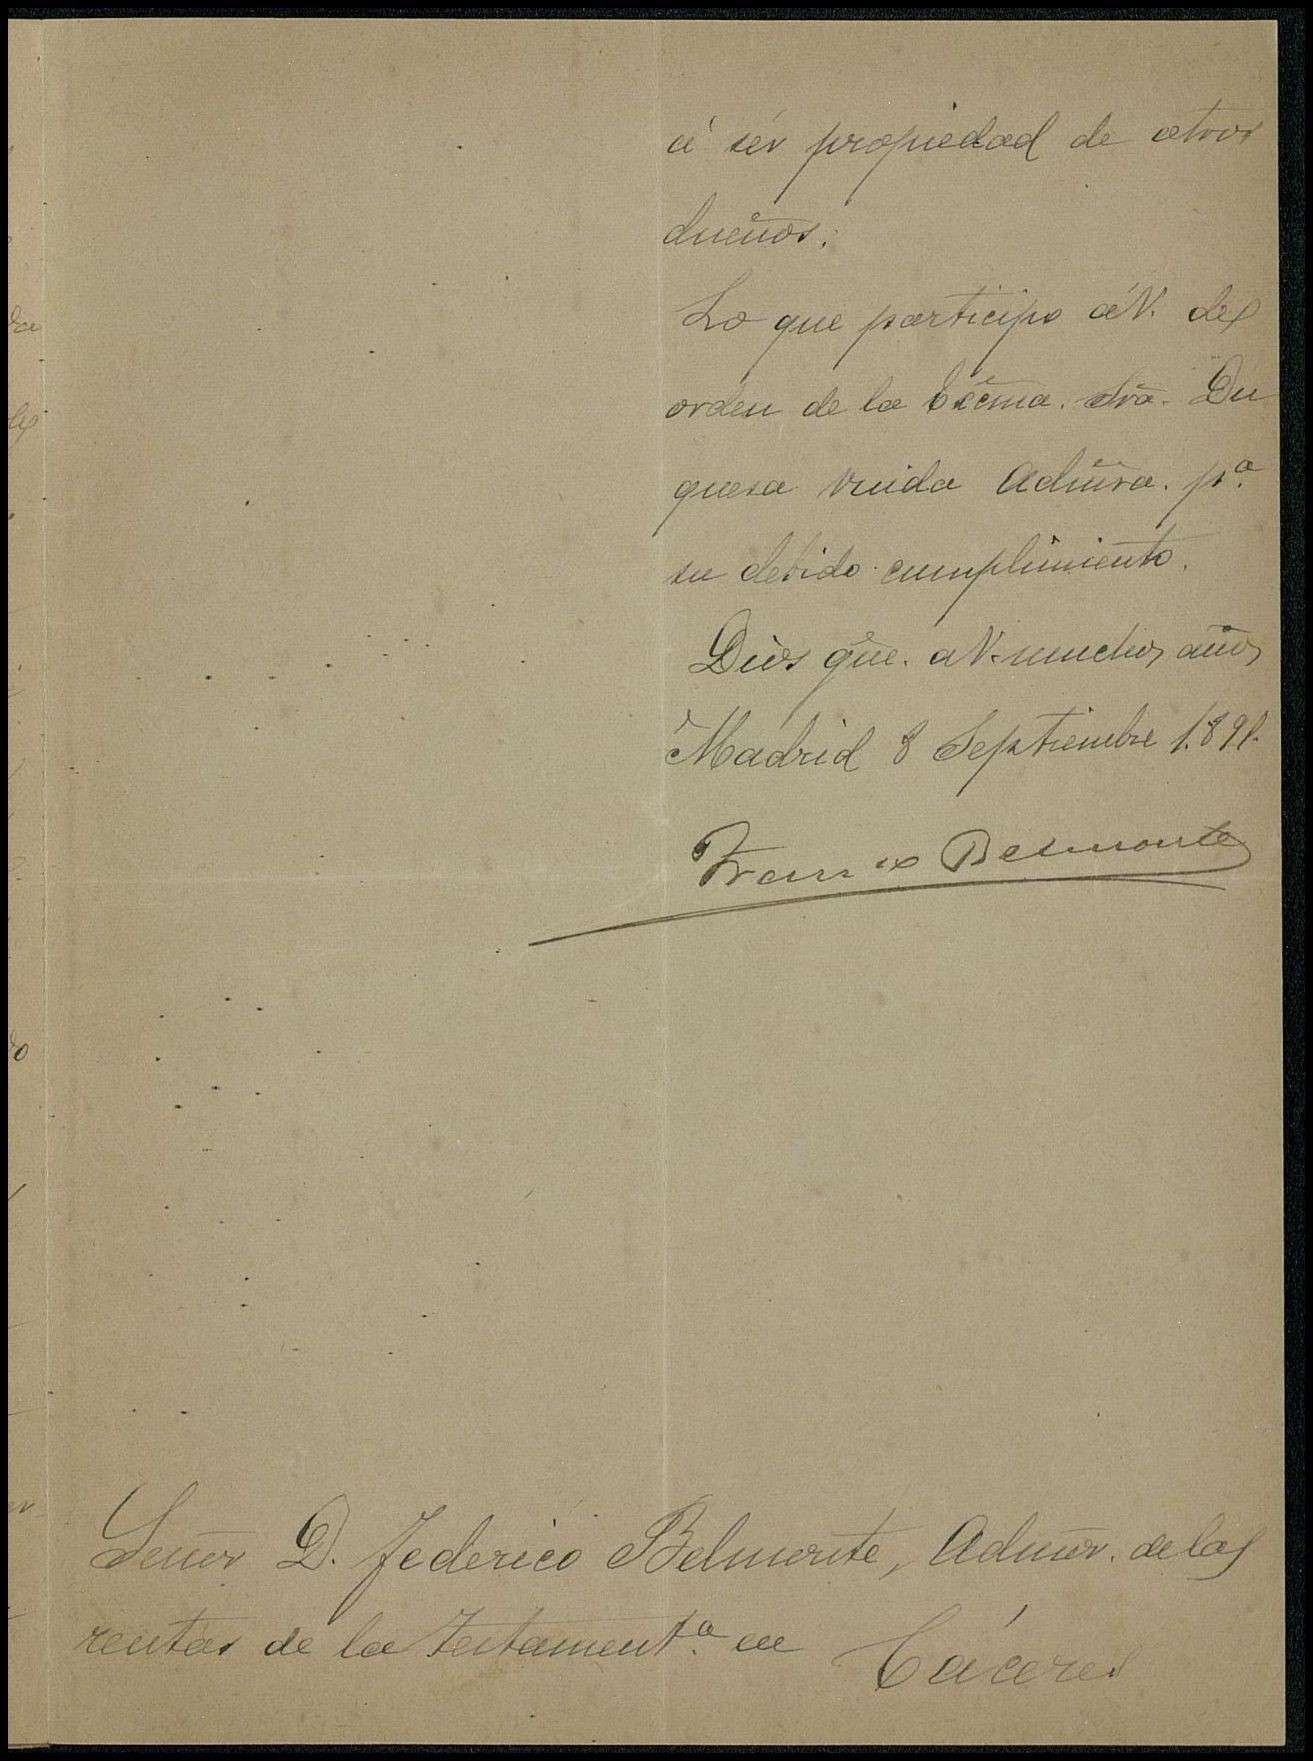 á sér propiedad de otros
dueños.
Lo que participo á V. de
orden de la Excma. Sra. Du
quesa viuda Admra. pª.
su debido cumplimiento.
Dios gue. a V. muchos años
Madrid 8 Septiembre 1.891.
Franco Belmonte
Señor D. Federico Belmonte, Admor. de las
rentas de la Testamentª. en
Cáceres